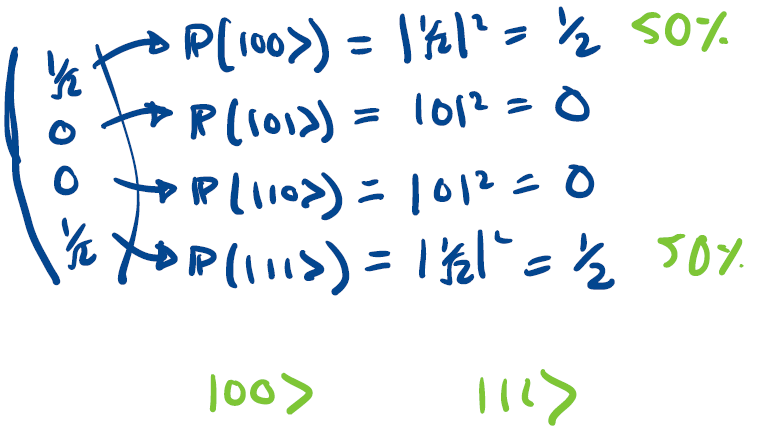 1/√2 P(|00>) = |1/√2|² = 1/2 50%
0 P(|01>) = |0|² = 0
0 P(|10>) = |0|² = 0
1/√2 P(|11>) = |1/√2|² = 1/2 50%
|00> |11>